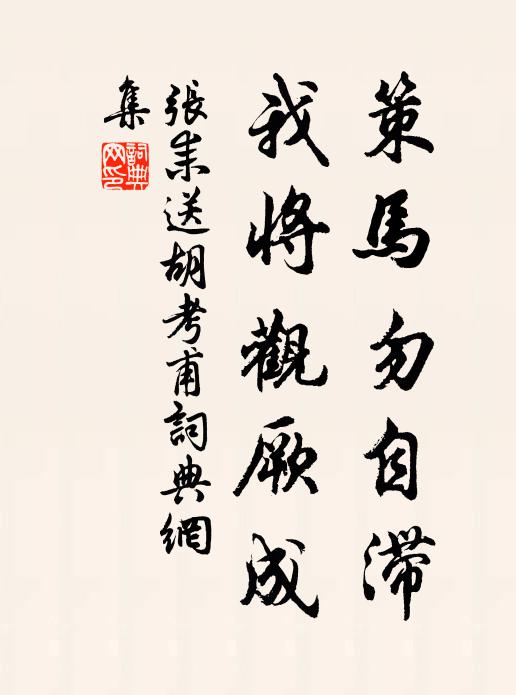 策馬勿自滯
我將觀厥成
張耒送胡考甫詞典網
集
詞典
网印